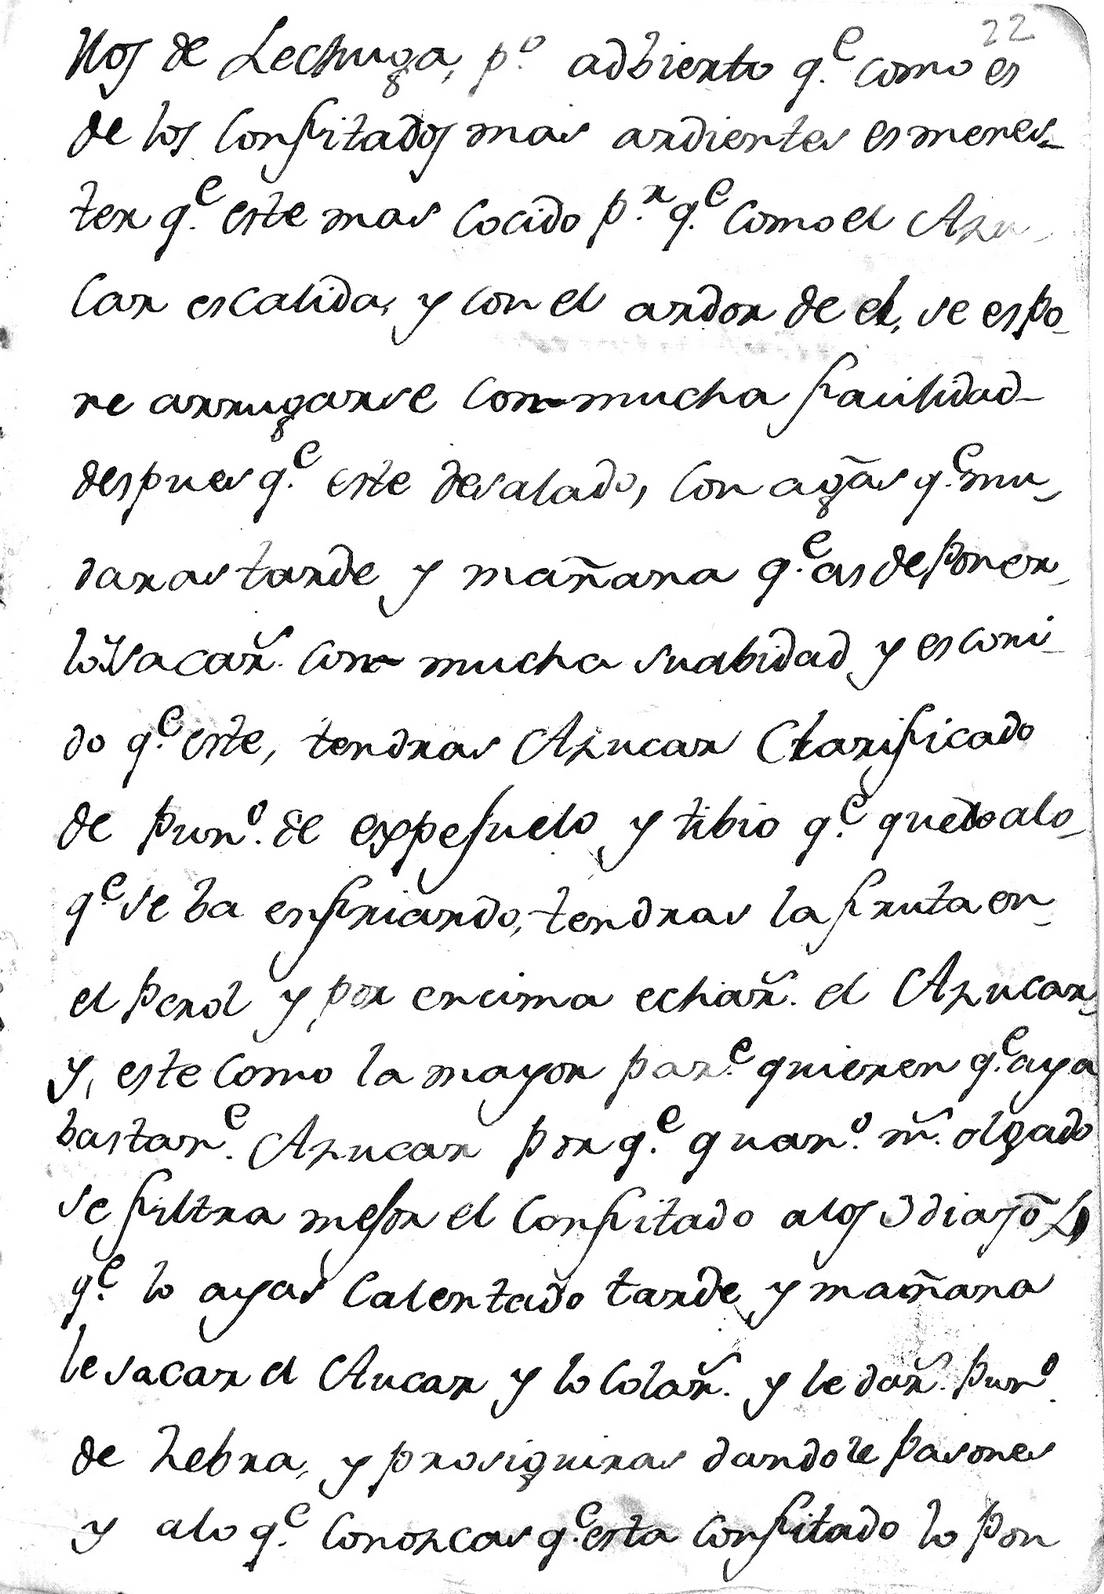 22
llos de Lechuga, p.º adbierto q.e como es
de los Confitados mas ardientes es menes-
ter q.e este mas Cocido p.r q.e Como el Azu-
Car es calida, y con el ardor de el, se espo-
ne arrugarse Con mucha facilidad
despues q.e este desalado, Con agũas q.e mu-
daras tarde y mañana q.e as de poner
los sacar.s Con mucha suabidad y escorri-
do q.e este, tendras Azucar Clarificado
de pun.º de expesuelo y tibio q.e quedo alo-
q.e se ba enfriando, tendras la fruta en
el perol y por encima echar.s el Azucar
y, este Como la mayor par.e quieren q.e aya
bastan.e Azucar por q.e quan.º m.s olgado
se filtra mejor el Confitado a los 3 dias õ 4
q.e lo ayas Calentado tarde y mañana
le sacar el Aucar y lo Colar.s y le dar.s pun.º
de hebra, y prosiguiras dandole pasones
y alo q.e Conozcas q.e esta Confitado lo pon